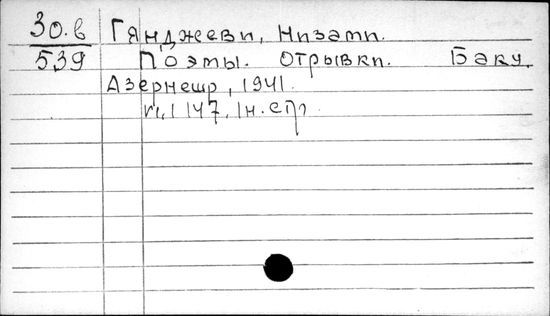 30.в Гянджеви, Низами.
539 Поэмы. Отрывки. Баку,
Азернешр, 1941.
147. 1 н. стр